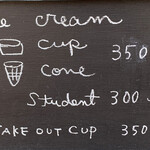 e cream
cup 350
cone
Student 300
TAKE OUT CUP 350